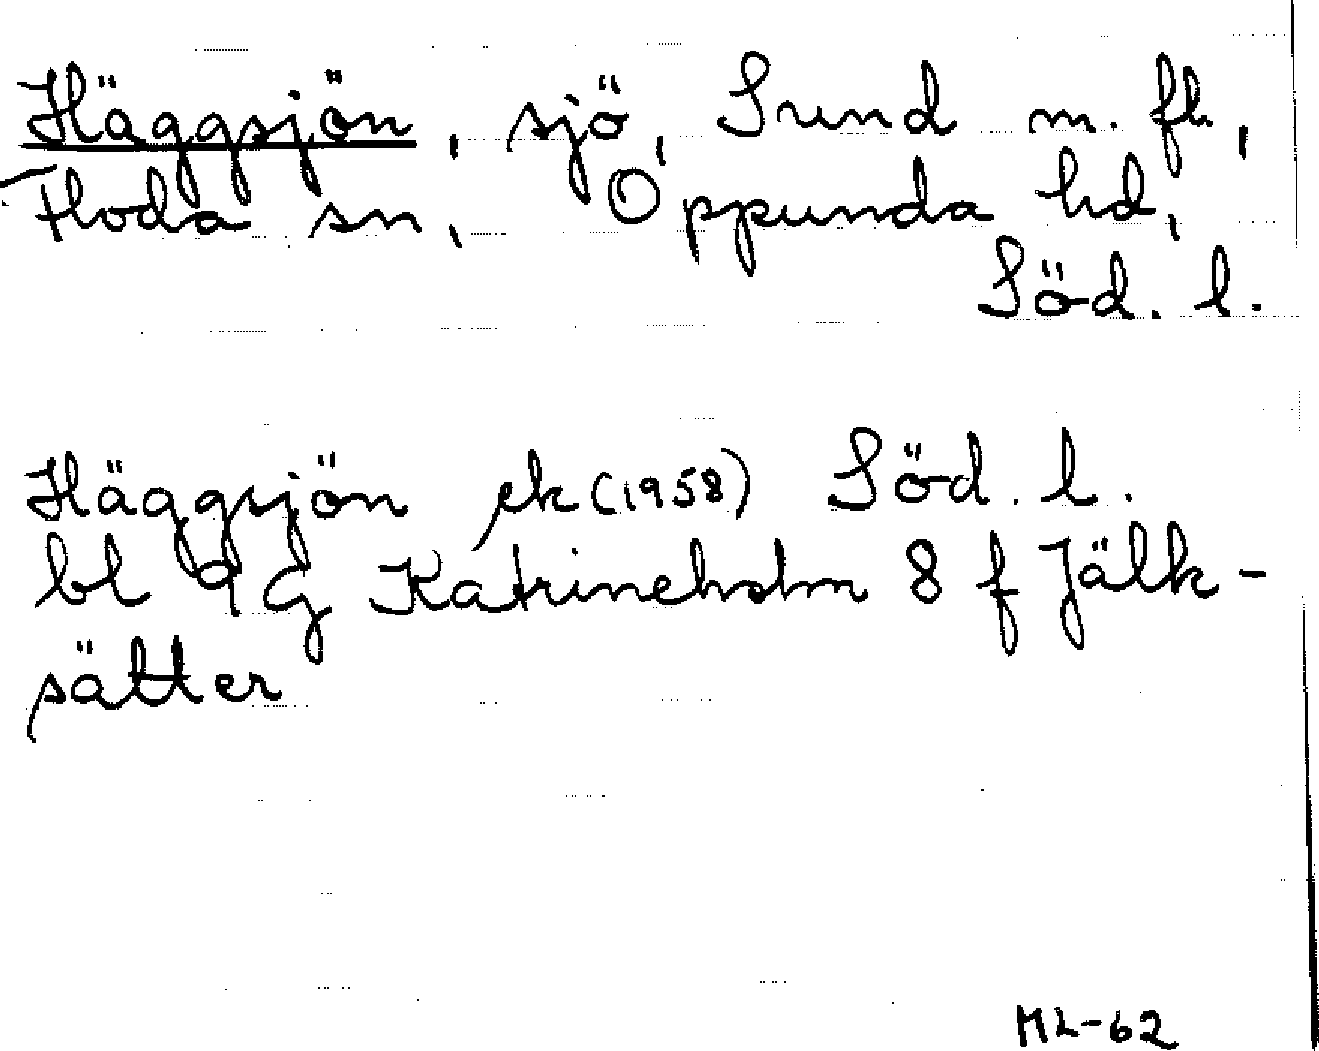 Häggsjön, sjö, Sund m. fl.,
Floda sn, Oppunda hd,
Söd. l.
Häggsjön ek (1958) Söd. l.
bl 9G Katrineholm 8 f Jälk-
sätter
ML-62